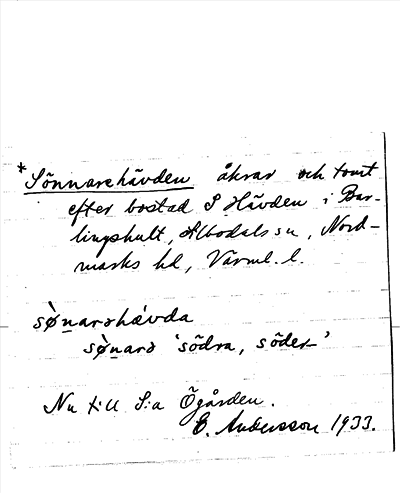 *Sönnarehävden åkrar och tomt
efter bostad S Hävden i Bär-
lingshult, Älbodals sn, Nord-
marks hd, Värml. l.
sø̀narəhævda
sø̀narə 'södra, söder-'
Nu till S:a Ögården.
E. Andersson 1933.